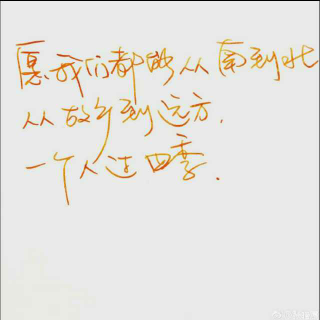 愿我们都能从南到北
从故乡到远方.
一个人过四季.